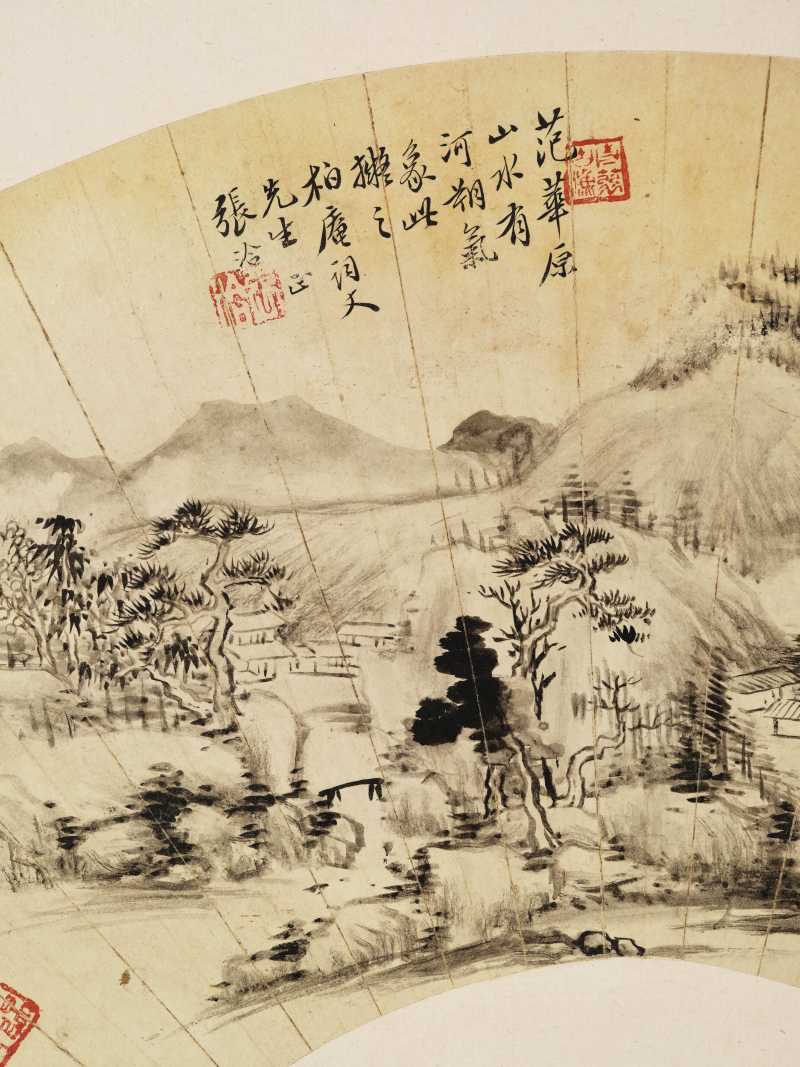 范華原
山水有
河朔氣
象此
擬之
柏庵詞丈
先生正
張洽